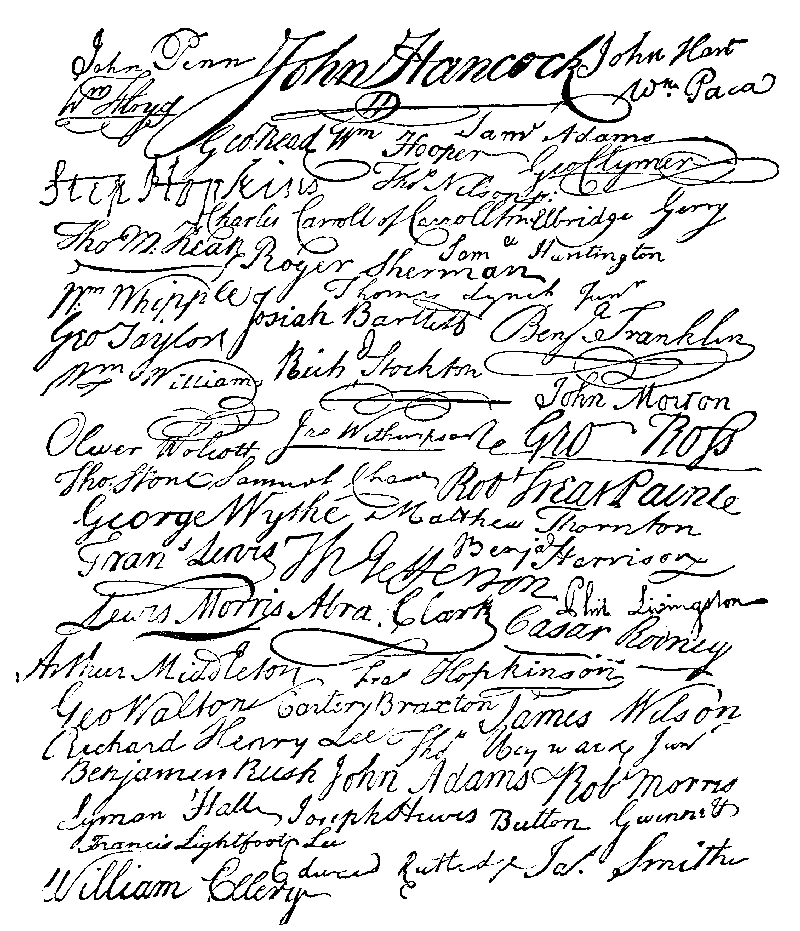 John Penn John Hancock John Hart
Wm Floyd Wm Paca
Geo Read Wm Hooper Saml Adams Geo Clymer
Step Hopkins Thos Nelson jr.
Charles Carroll of Carrollton Elbridge Gerry
Tho M. Kean Roger Sherman Saml Huntington
Wm Whipple Thomas Lynch Junr
Geo Taylor Josiah Bartlett Benja Franklin
Wm Williams Rich Stockton
John Morton
Oliver Wolcott Jno Witherspoon Geo Ross
Tho. Stone Samuel Chase Robt Treat Paine
George Wythe Matthew Thornton
Frans Lewis Th Jefferson Benja Harrison
Lewis Morris Abra. Clark Phil Livingston
Cæsar Rodney
Arthur Middleton Fras Hopkinson
Geo Walton Carter Braxton James Wilson
Richard Henry Lee Thos Heyward Junr
Benjamin Rush John Adams Robt Morris
Lyman Hall Joseph Hewes Button Gwinnett
Francis Lightfoot Lee
William Ellery Edward Rutledge Jas. Smith